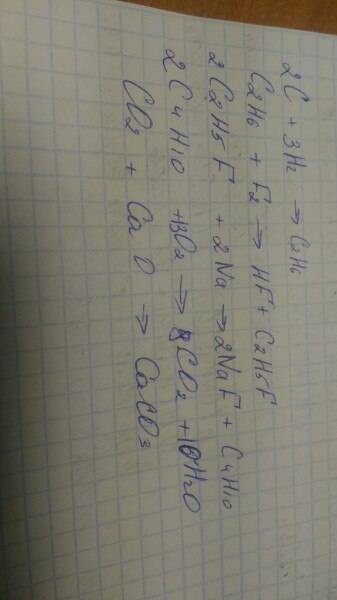 2C + 3H2 → C2H6
C2H6 + F2 → HF + C2H5F
2C2H5F + 2Na → 2NaF + C4H10
2C4H10 + 13O2 → 8CO2 + 10H2O
CO2 + CaO → CaCO3